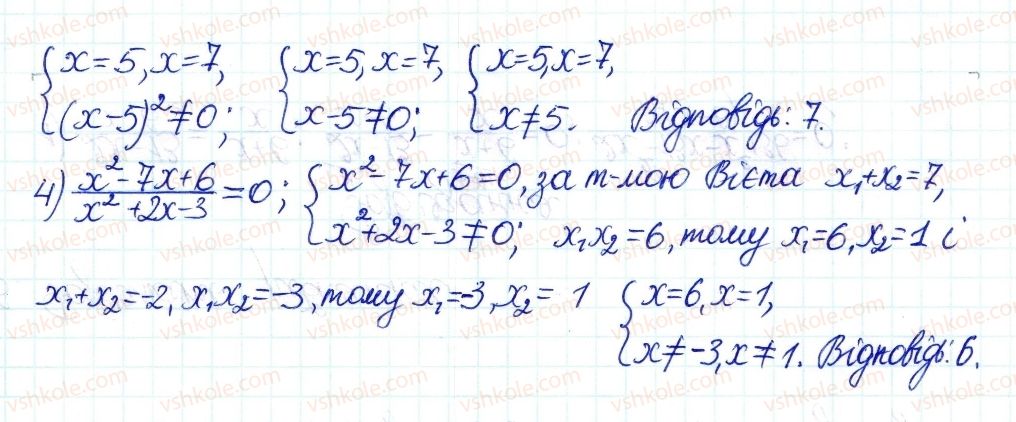 {x=5, x=7, {x=5, x=7, {x=5, x=7,
(x-5)²≠0; x-5≠0; x≠5. Відповідь: 7.
4) (x²-7x+6)/(x²+2x-3)=0; {x²-7x+6=0, за т-мою Вієта x₁+x₂=7,
x²+2x-3≠0; x₁x₂=6, тому x₁=6, x₂=1 і
x₁+x₂=-2, x₁x₂=-3, тому x₁=-3, x₂= 1 {x=6, x=1,
x≠-3, x≠1. Відповідь: 6.